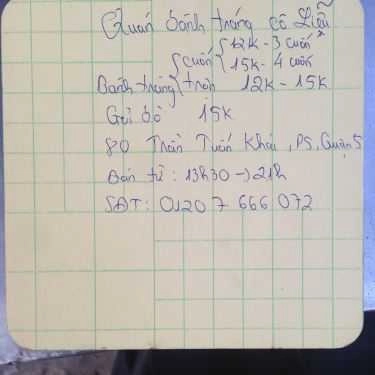 Quán bánh tráng cô Liễu
12k - 3 cuốn
cuốn 15k - 4 cuốn
Bánh tráng trộn 12k - 15k
Gỏi bò 15k
80 Trần Tuấn Khải, P5, Quận 5
Bán từ : 13h30 → 21h
SĐT : 01207 666 072